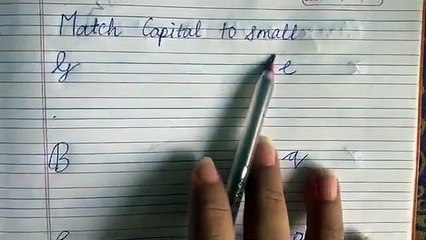 Match Capital to small
G e
B q